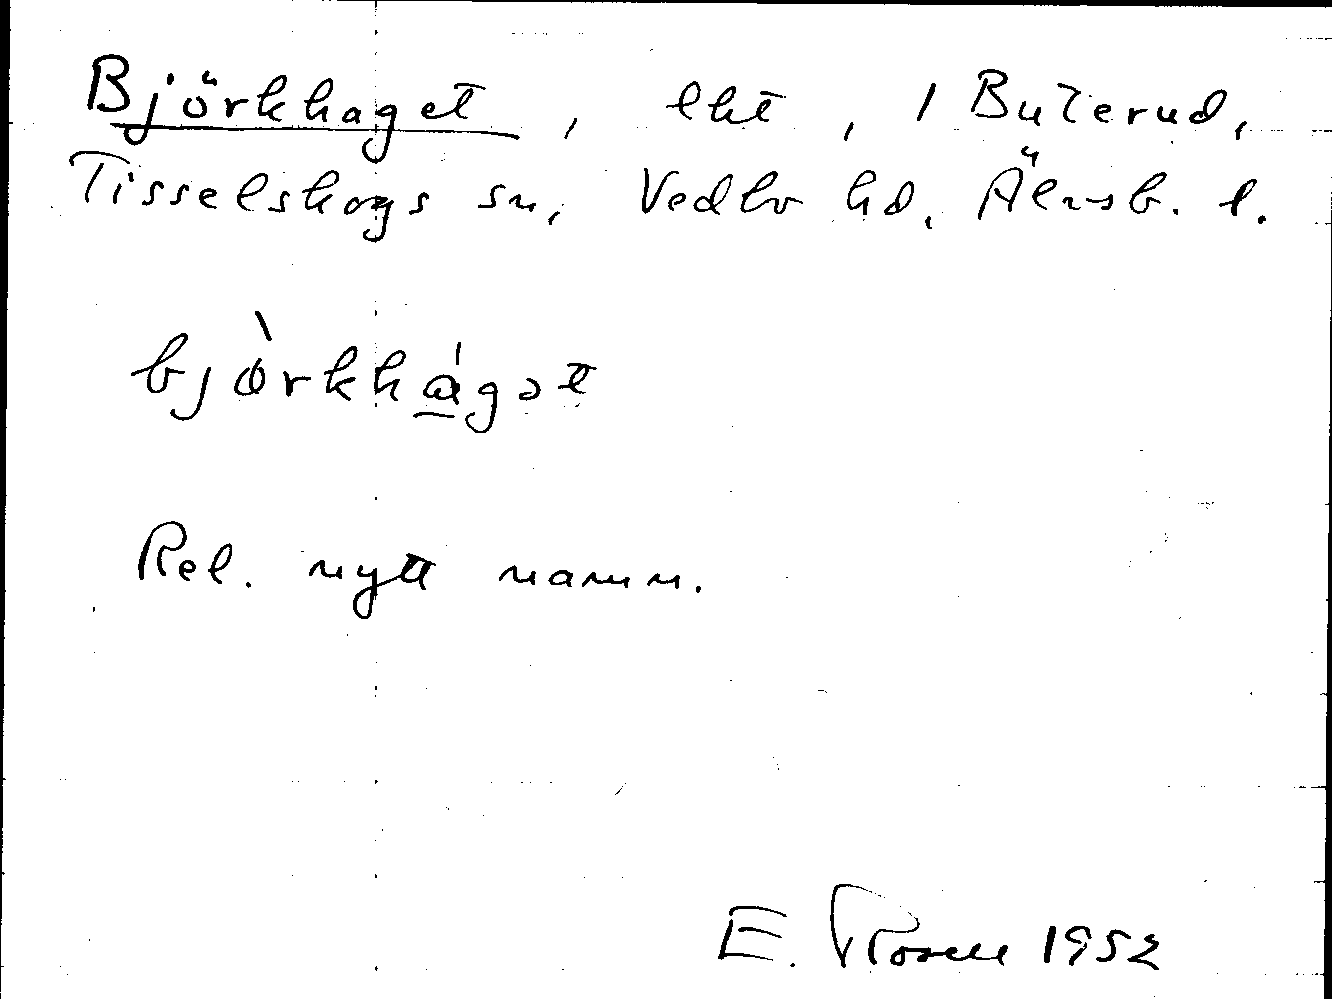 Björkhaget, lht, 1 Buterud,
Tisselskogs sn, Vedbo hd, Älvsb. l.
bjòrkhágət
Rel. nytt namn.
E. Rosell 1952